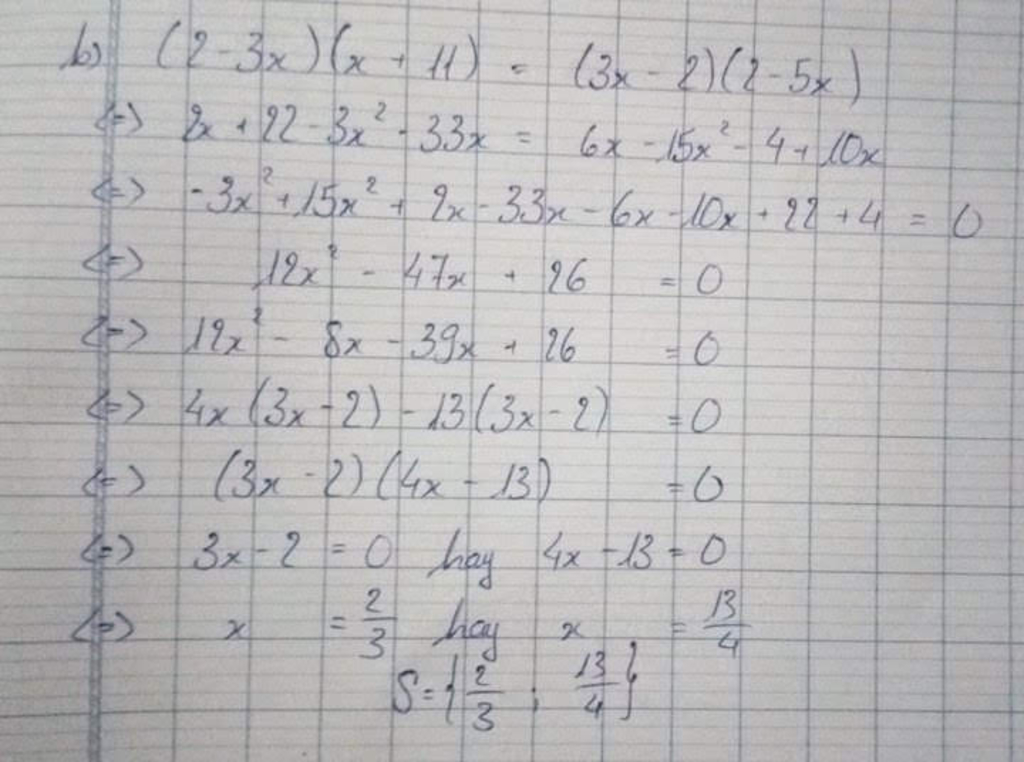 b) (2-3x)(x+11) = (3x-2)(2-5x)
<=> 2x + 22 - 3x² - 33x = 6x - 15x² - 4 + 10x
<=> -3x² + 15x² + 2x - 33x - 6x - 10x + 22 + 4 = 0
<=> 12x² - 47x + 26 = 0
<=> 12x² - 8x - 39x + 26 = 0
<=> 4x(3x-2) - 13(3x-2) = 0
<=> (3x-2)(4x-13) = 0
<=> 3x-2 = 0 hay 4x-13 = 0
<=> x = 2/3 hay x = 13/4
S = {2/3 ; 13/4}